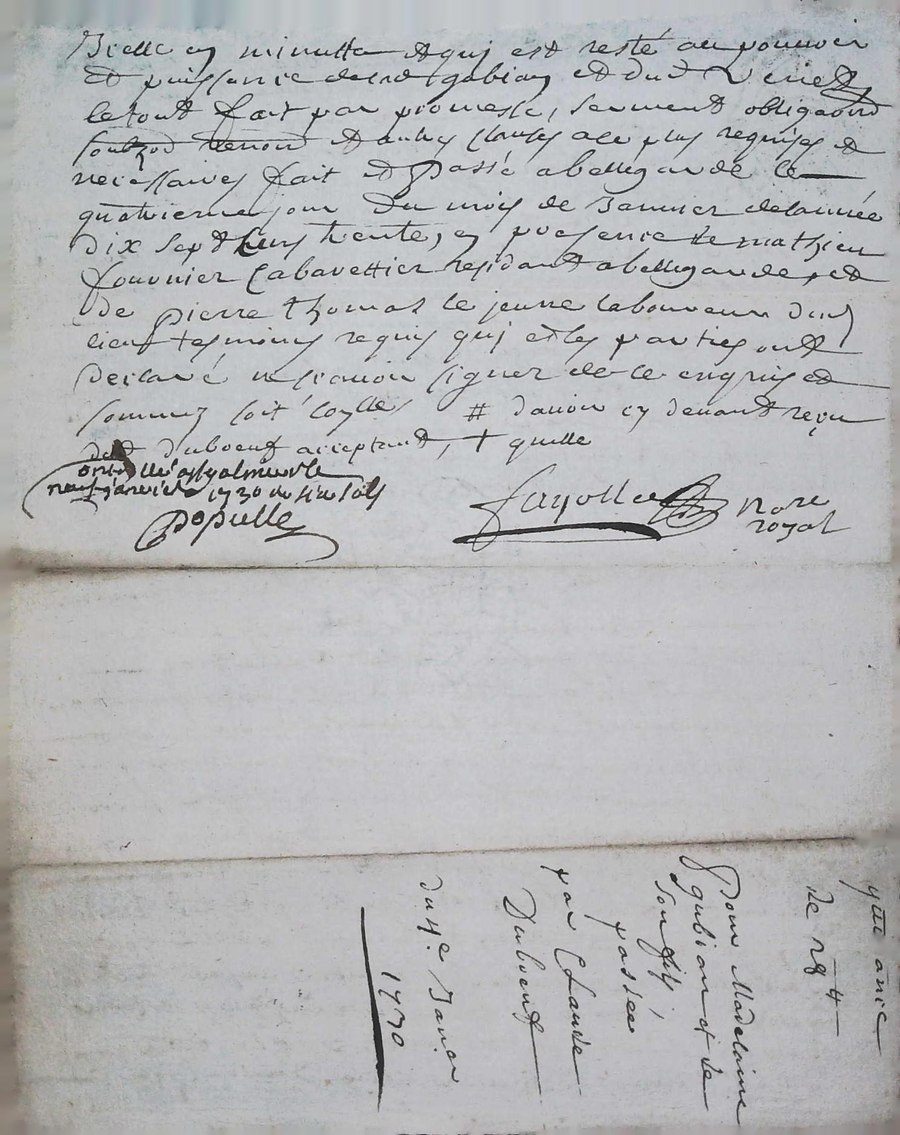 Icelle en minutte et quj est resté au pouvoir
et puissance de lad gubian et dud
le tout fait par promesse, serment obligaond
renond et autres clauses a ce plus requises et
necessaires fait et passé a bellegarde le
quatrieme jour du mois de Janvier de lannée
dix sept Cens trente, en presence de mathieu
fournier Cabarettier residant a bellegarde, et
de pierre thomas le jeune laboureur dud
lieu tesmoins requis quj et les parties ont
declaré ne scavoir signer de ce enquis et
sommez soit #  davoir cy devant reçu
dud duboeuf acceptant, + quelle
neuf janvier 1730
populle
fayolle nore
royal
qtt ance
de 28 tt
pour Madelaine
gubian et de
son fils,
passée
par Claude
Duboeuf
du 4e Janer
1730